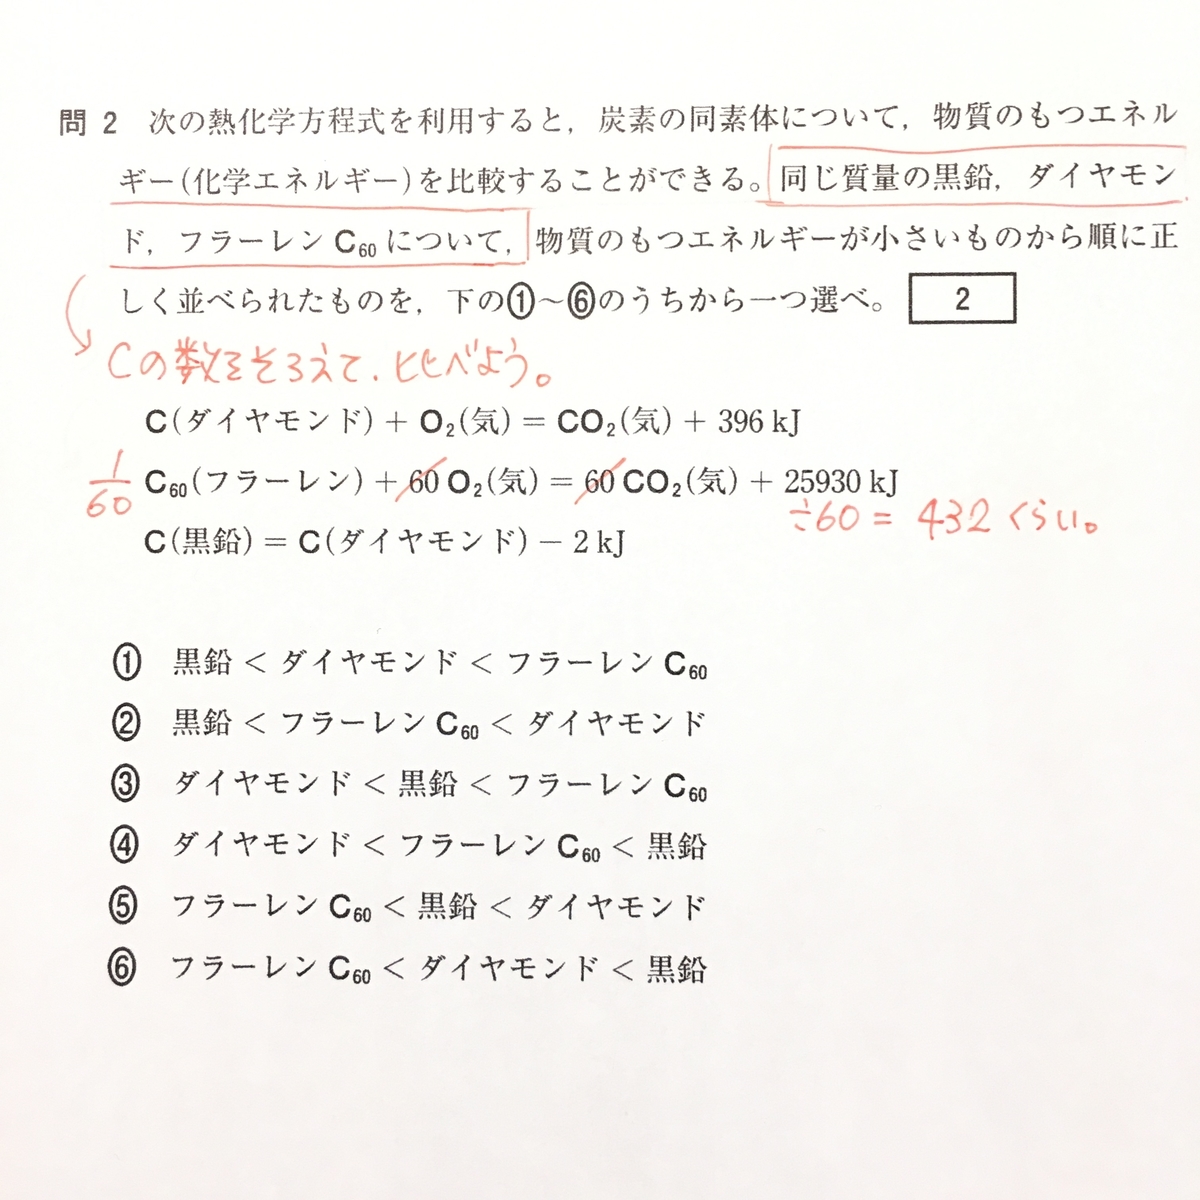 問 2 次の熱化学方程式を利用すると，炭素の同素体について，物質のもつエネル
ギー(化学エネルギー)を比較することができる。同じ質量の黒鉛，ダイヤモン
ド，フラーレン C₆₀ について，物質のもつエネルギーが小さいものから順に正
しく並べられたものを，下の①～⑥のうちから一つ選べ。 2
Cの数をそろえて、比べよう。
C(ダイヤモンド) + O₂(気) = CO₂(気) + 396 kJ
1/60 C₆₀(フラーレン) + 60 O₂(気) = 60 CO₂(気) + 25930 kJ
÷60 = 432 くらい。
C(黒鉛) = C(ダイヤモンド) − 2 kJ
① 黒鉛 < ダイヤモンド < フラーレン C₆₀
② 黒鉛 < フラーレン C₆₀ < ダイヤモンド
③ ダイヤモンド < 黒鉛 < フラーレン C₆₀
④ ダイヤモンド < フラーレン C₆₀ < 黒鉛
⑤ フラーレン C₆₀ < 黒鉛 < ダイヤモンド
⑥ フラーレン C₆₀ < ダイヤモンド < 黒鉛